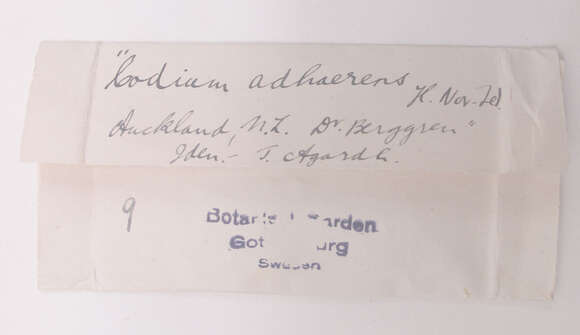 "Codium adhaerens H. Nov. Zel.
Auckland, N.Z. Dr. Berggren"
Iden. - J. Agardh.
9
Botanic Garden
Gotenburg
Sweden